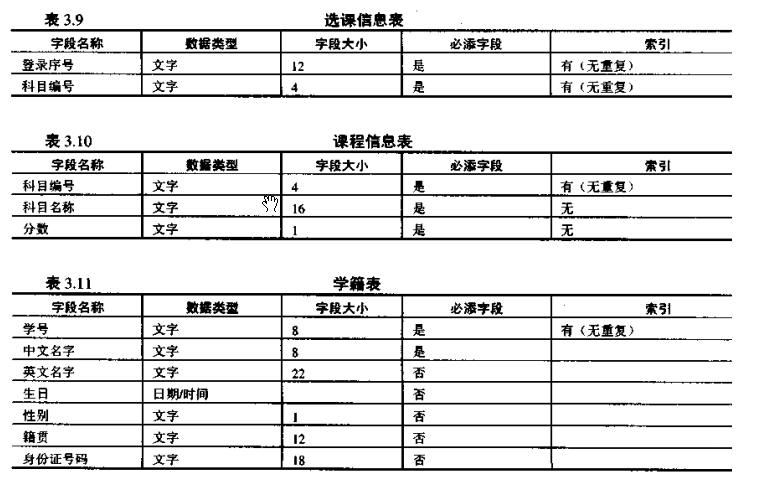 表 3.9 选课信息表
字段名称 数据类型 字段大小 必添字段 索引
登录序号 文字 12 是 有（无重复）
科目编号 文字 4 是 有（无重复）
表 3.10 课程信息表
字段名称 数据类型 字段大小 必添字段 索引
科目编号 文字 4 是 有（无重复）
科目名称 文字 16 是 无
分数 文字 1 是 无
表 3.11 学籍表
字段名称 数据类型 字段大小 必添字段 索引
学号 文字 8 是 有（无重复）
中文名字 文字 8 是
英文名字 文字 22 否
生日 日期/时间 否
性别 文字 1 否
籍贯 文字 12 否
身份证号码 文字 18 否